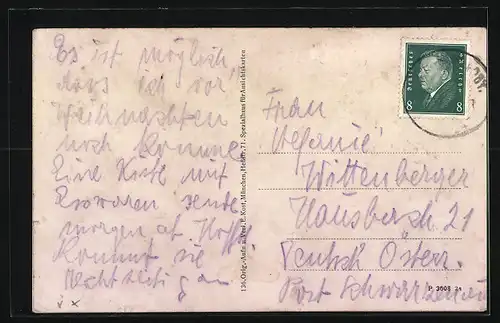 Es ist möglich,
dass ich vor
Weihnachten
noch komme
Eine Kiste mit
Esswaren sende
morgen ab Hoff.
Kommt sie
rechtzeitig an
Frau
Stefanie
Wittenberger
Hausberch 21
Deutsch Österr.
Post Schwarzenau
Deutsches Reich
8 8
136. Orig.-Aufn. u. Verl. E. Kost, München, 71. Spezialhaus für Ansichtskarten
P 3008